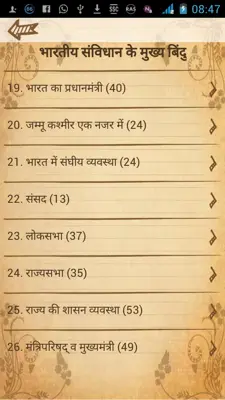 SSC
RAS
08:47
भारतीय संविधान के मुख्य बिंदु
19. भारत का प्रधानमंत्री (40)
20. जम्मू कश्मीर एक नजर में (24)
21. भारत में संघीय व्यवस्था (24)
22. संसद (13)
23. लोकसभा (37)
24. राज्यसभा (35)
25. राज्य की शासन व्यवस्था (53)
26. मंत्रिपरिषद् व मुख्यमंत्री (49)